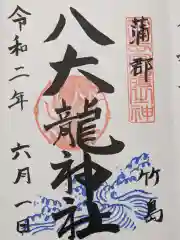 蒲郡
竹島
八大龍神社
令和二年
六月一日